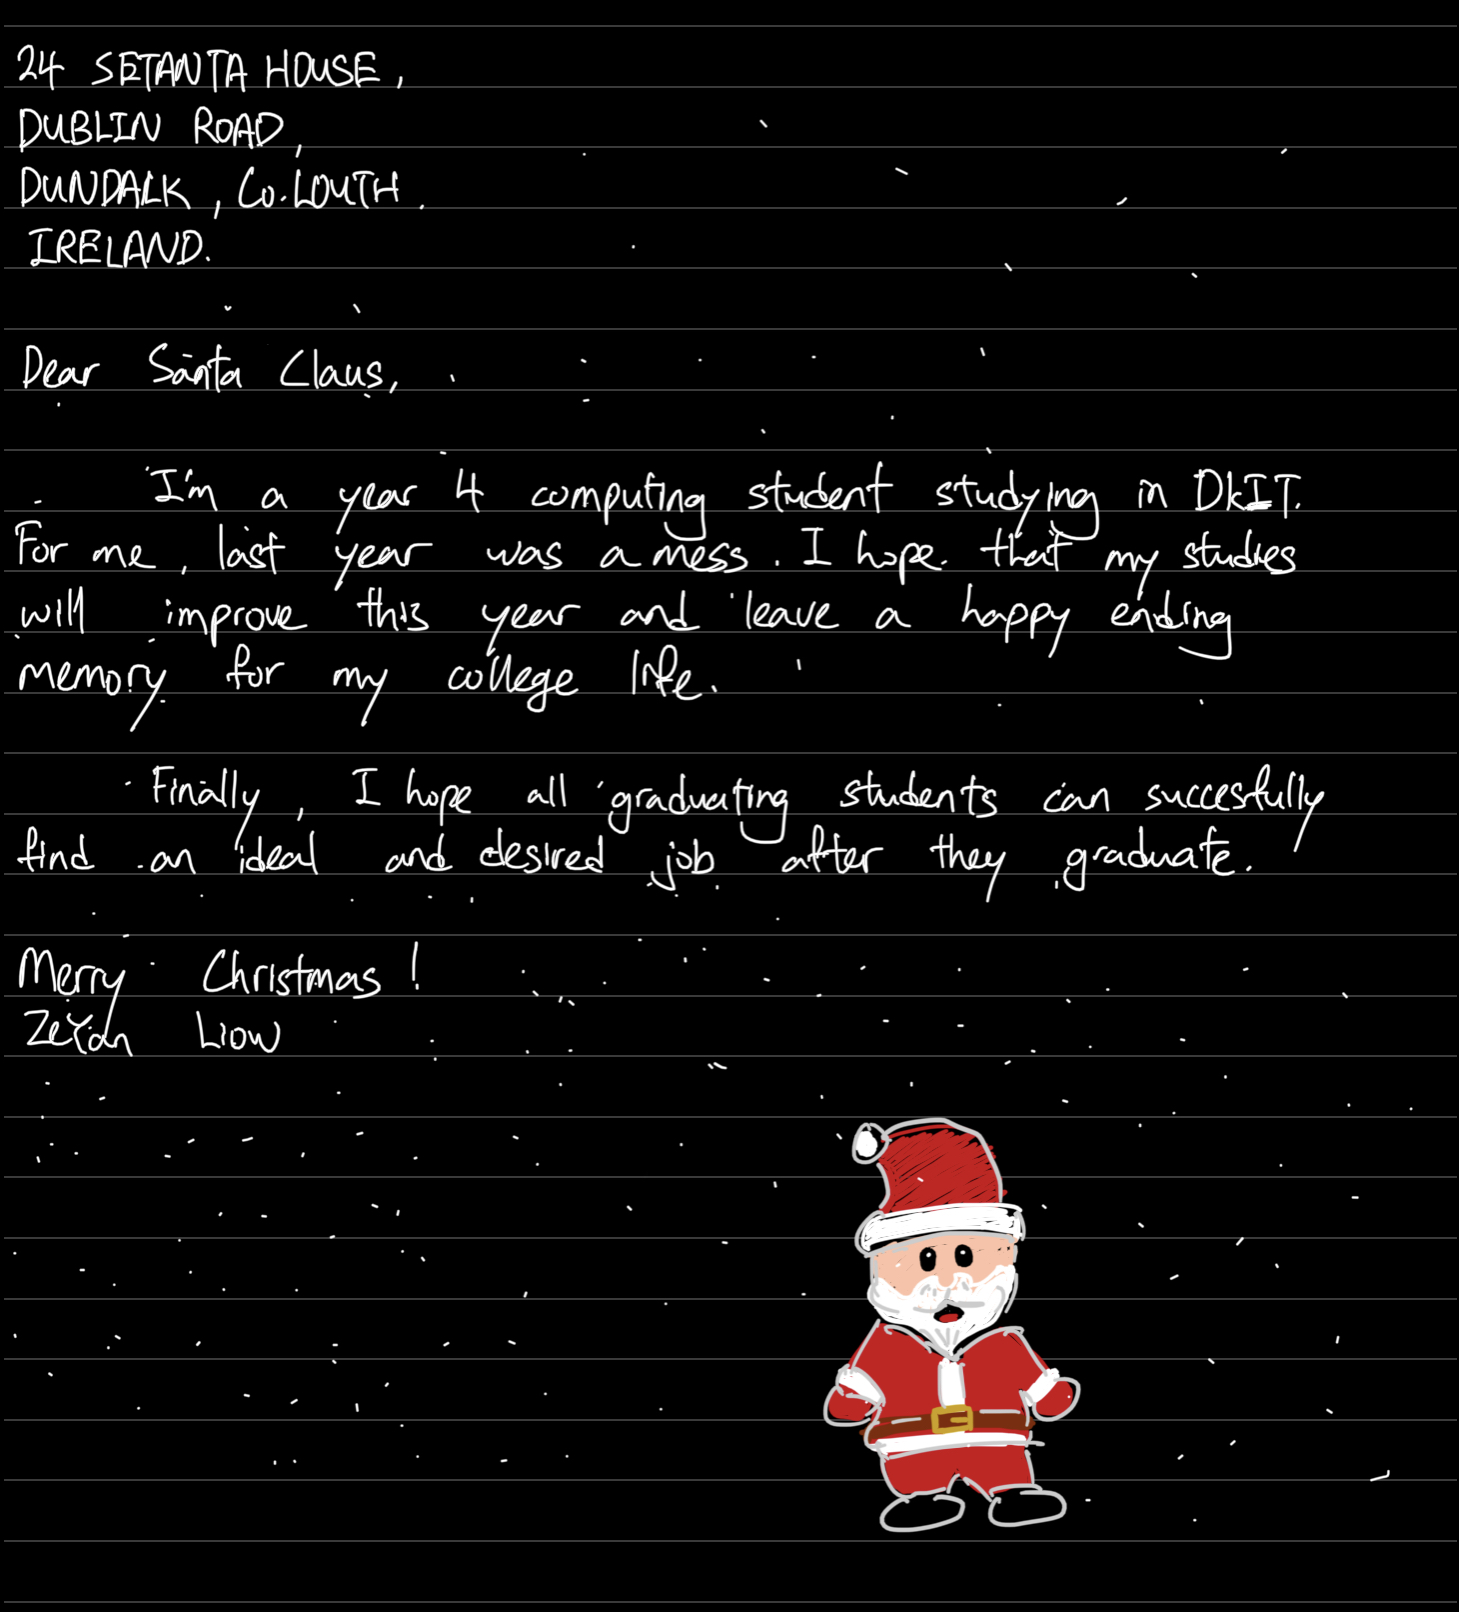 24 SETANTA HOUSE,
DUBLIN ROAD,
DUNDALK, Co. LOUTH.
IRELAND.
Dear Santa Claus,
I'm a year 4 computing student studying in DkIT.
For me, last year was a mess. I hope that my studies
will improve this year and leave a happy ending
memory for my college life.
Finally, I hope all graduating students can succesfully
find an ideal and desired job after they graduate.
Merry Christmas!
ZeYan Liow